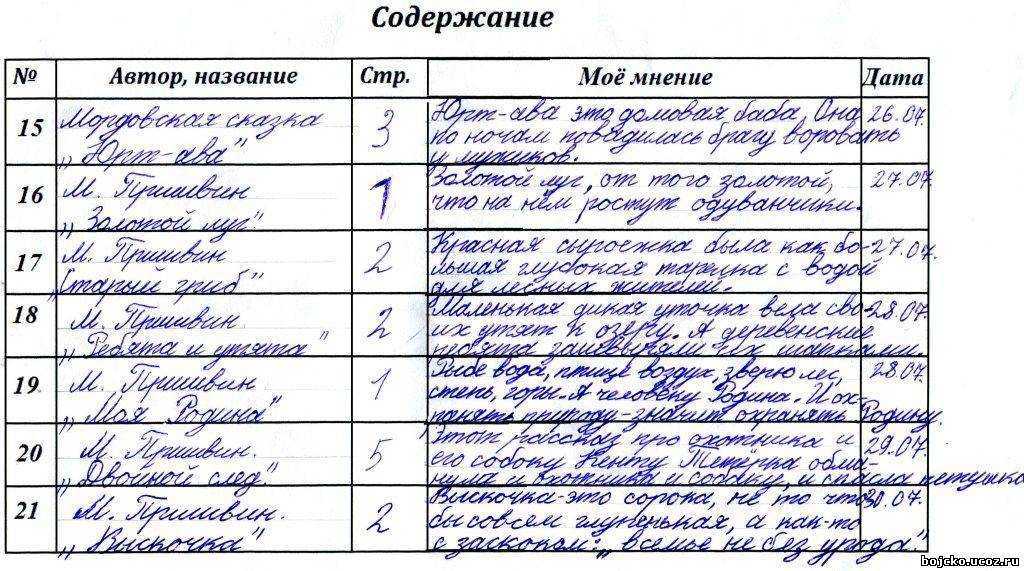 Содержание
№ Автор, название Стр. Моё мнение Дата
15 Мордовская сказка „Юрт-ава" 3 Юрт-ава это домовая баба. Она 26.07.
по ночам повадилась брагу воровать
у мужиков.
16 М. Пришвин „Золотой луг". 1 Золотой луг, от того золотой, 27.07.
что на нём ростут одуванчики.
17 М. Пришвин „Старый гриб" 2 Красная сыроежка была как бо- 27.07.
льшая глубокая тарелка с водой
для лесных жителей.
18 М. Пришвин. „Ребята и утята" 2 Маленькая дикая уточка вела сво- 28.07.
их утят к озеру. А деревенские
ребята зашвыряли их шапками.
19 М. Пришвин. „Моя Родина" 1 Рыбе вода, птице воздух, зверю лес, 28.07.
степь, горы. А человеку Родина. И ох-
ранять природу-значит охранять Родину.
20 М. Пришвин. „Двойной след". 5 Этот рассказ про охотника и 29.07.
его собаку Кенту. Тетёрка обма-
нула и охотника и собаку, и спасла петушка
21 М. Пришвин. „Выскочка" 2 Выскочка-это сорока, не то что 30.07.
бы совсем глупенькая, а как-то
с заскоком: „в семье не без урода".
bojcko.ucoz.ru